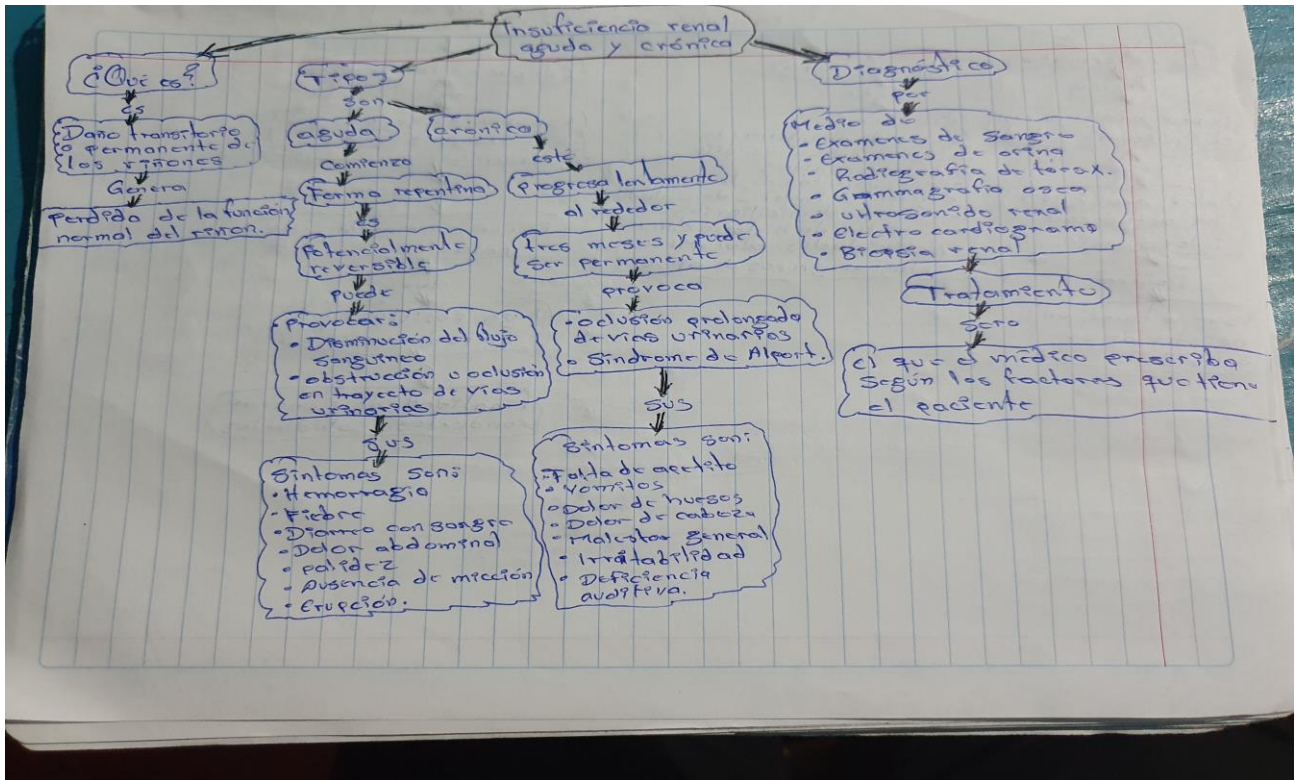 Insuficiencia renal
aguda y crónica
¿Qué es?
es
Daño transitorio
o permanente de
los riñones
Genera
Perdida de la función
normal del riñon.
Tipos
son
aguda
Comienza
Forma repentina
es
Potencialmente
reversible
puede
Provocar:
• Disminución del flujo
sanguineo
• obstrucción u oclusión
en trayecto de vías
urinarias
sus
Sintomas son:
• Hemorragia
• Fiebre
• Diarrea con sangre
• Dolor abdominal
• palidez
• Ausencia de micción
• Erupción.
crónica
está
progresa lentamente
al rededor
tres meses y puede
ser permanente
provoca
• Oclusión prolongada
de vías urinarias
• Sindrome de Alport.
sus
Sintomas son:
• Falta de apetito
• Vomitos
• Dolor de huesos
• Dolor de cabeza
• Malestar general
• Irritabilidad
• Deficiencia
auditiva.
Diagnóstico
por
Medio de
• Examenes de sangre
• Examenes de orina
• Radiografía de tórax.
• Grammagrafia osea
• ultrasonido renal
• electro cardiograma
• Biopsia renal
Tratamiento
Sera
el que el médico prescriba
según los factores que tiene
el paciente